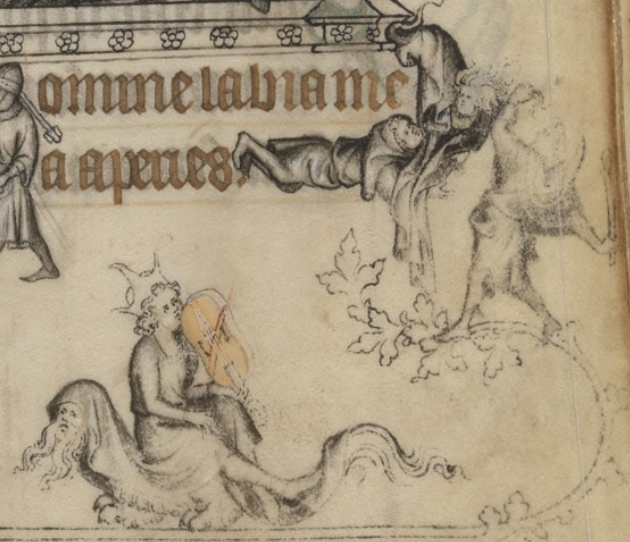 omine labia me
a aperies.